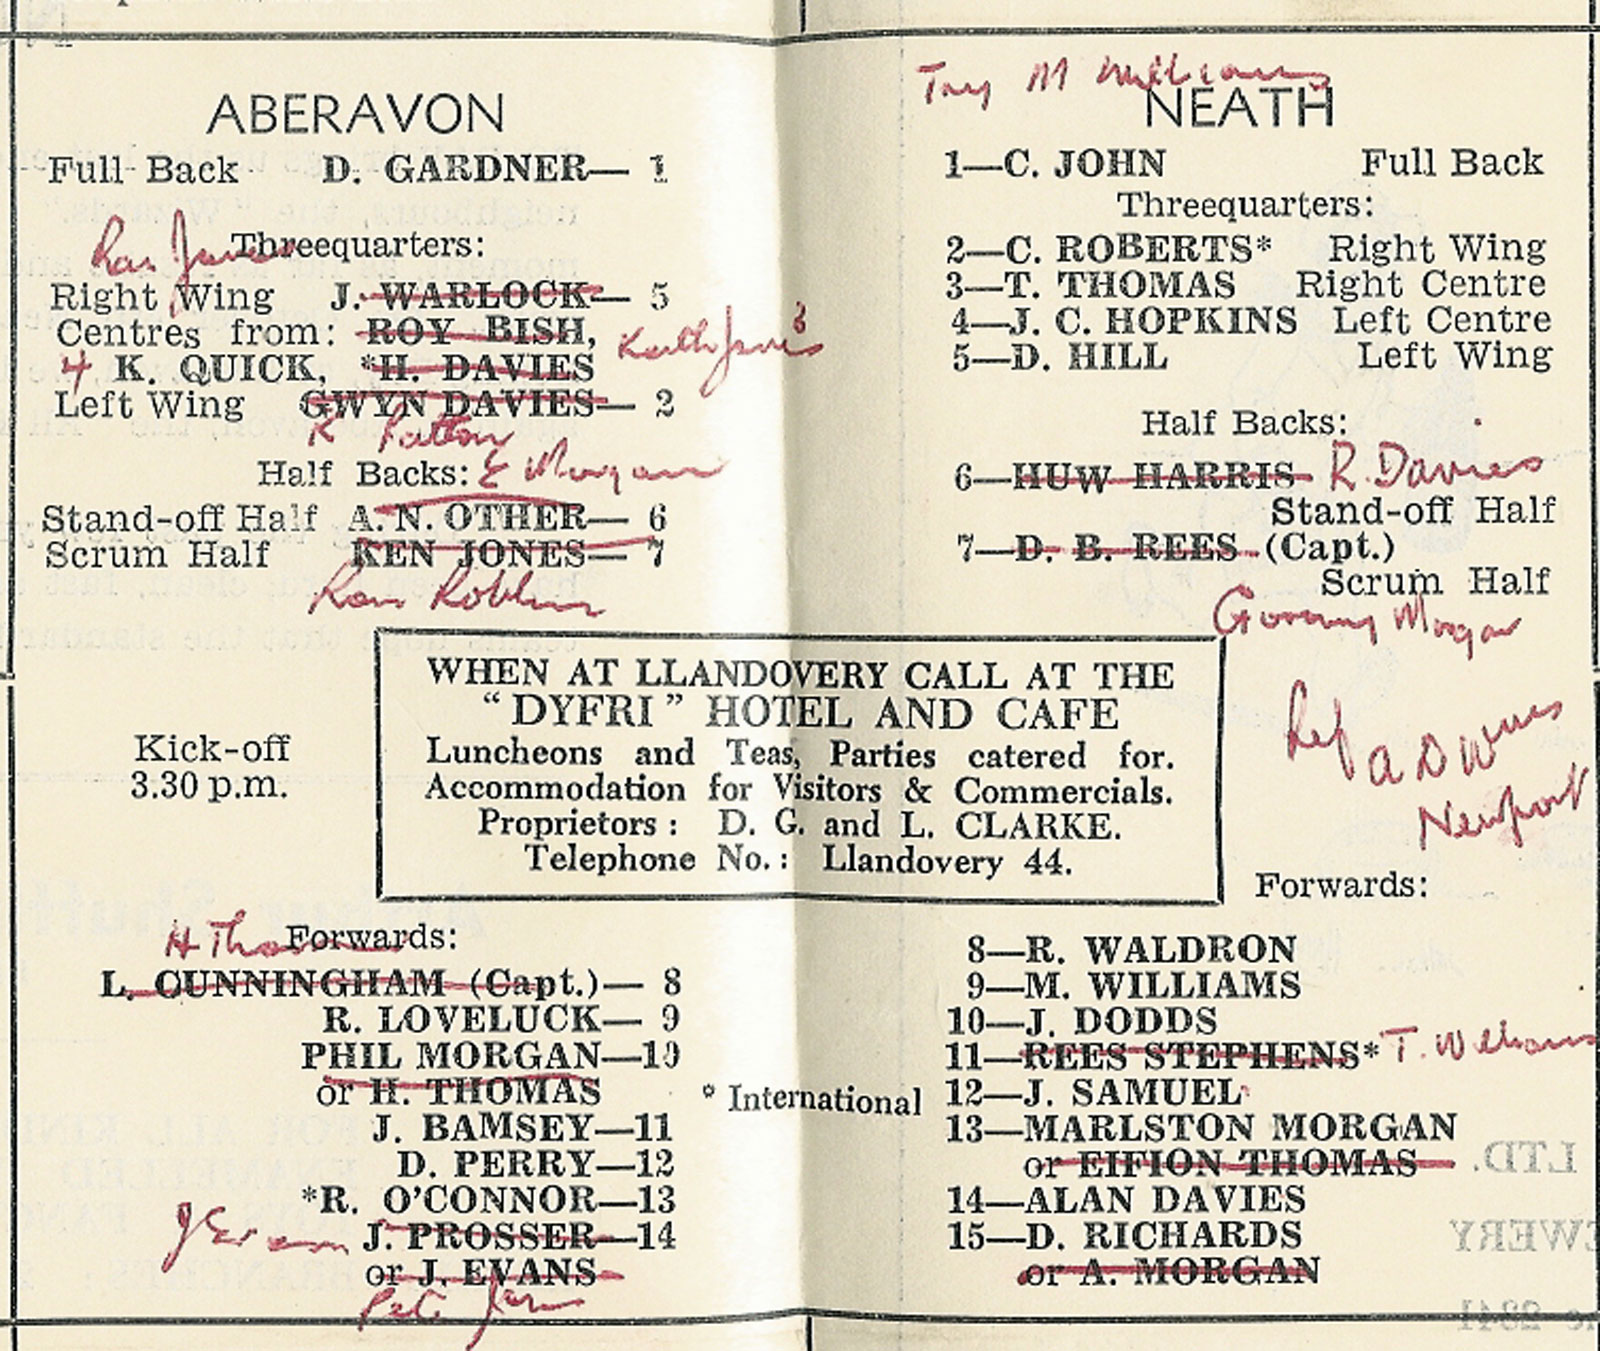 ABERAVON
Full Back D. GARDNER— 1
Ron Jones
Threequarters:
Right Wing J. WARLOCK— 5
Centres from: ROY BISH,
Keith Jones 3
4 K. QUICK, *H. DAVIES
Left Wing GWYN DAVIES— 2
K
Half Backs: E Morgan
Stand-off Half A. N. OTHER— 6
Scrum Half KEN JONES— 7
Ron
Kick-off
3.30 p.m.
H Thomas
Forwards:
L. CUNNINGHAM (Capt.)— 8
R. LOVELUCK— 9
PHIL MORGAN—10
or H. THOMAS
J. BAMSEY—11
D. PERRY—12
*R. O'CONNOR—13
J Evans J. PROSSER—14
or J. EVANS
Pete Jones
WHEN AT LLANDOVERY CALL AT THE
“DYFRI” HOTEL AND CAFE
Luncheons and Teas, Parties catered for.
Accommodation for Visitors & Commercials.
Proprietors : D. G. and L. CLARKE.
Telephone No. : Llandovery 44.
* International
Try M Williams
NEATH
1—C. JOHN Full Back
Threequarters:
2—C. ROBERTS* Right Wing
3—T. THOMAS Right Centre
4—J. C. HOPKINS Left Centre
5—D. HILL Left Wing
Half Backs:
6—HUW HARRIS R. Davies
Stand-off Half
7—D. B. REES (Capt.)
Scrum Half
Morgan
Ref
A D
Newport
Forwards:
8—R. WALDRON
9—M. WILLIAMS
10—J. DODDS
11—REES STEPHENS* T. Williams
12—J. SAMUEL
13—MARLSTON MORGAN
or EIFION THOMAS
14—ALAN DAVIES
15—D. RICHARDS
or A. MORGAN